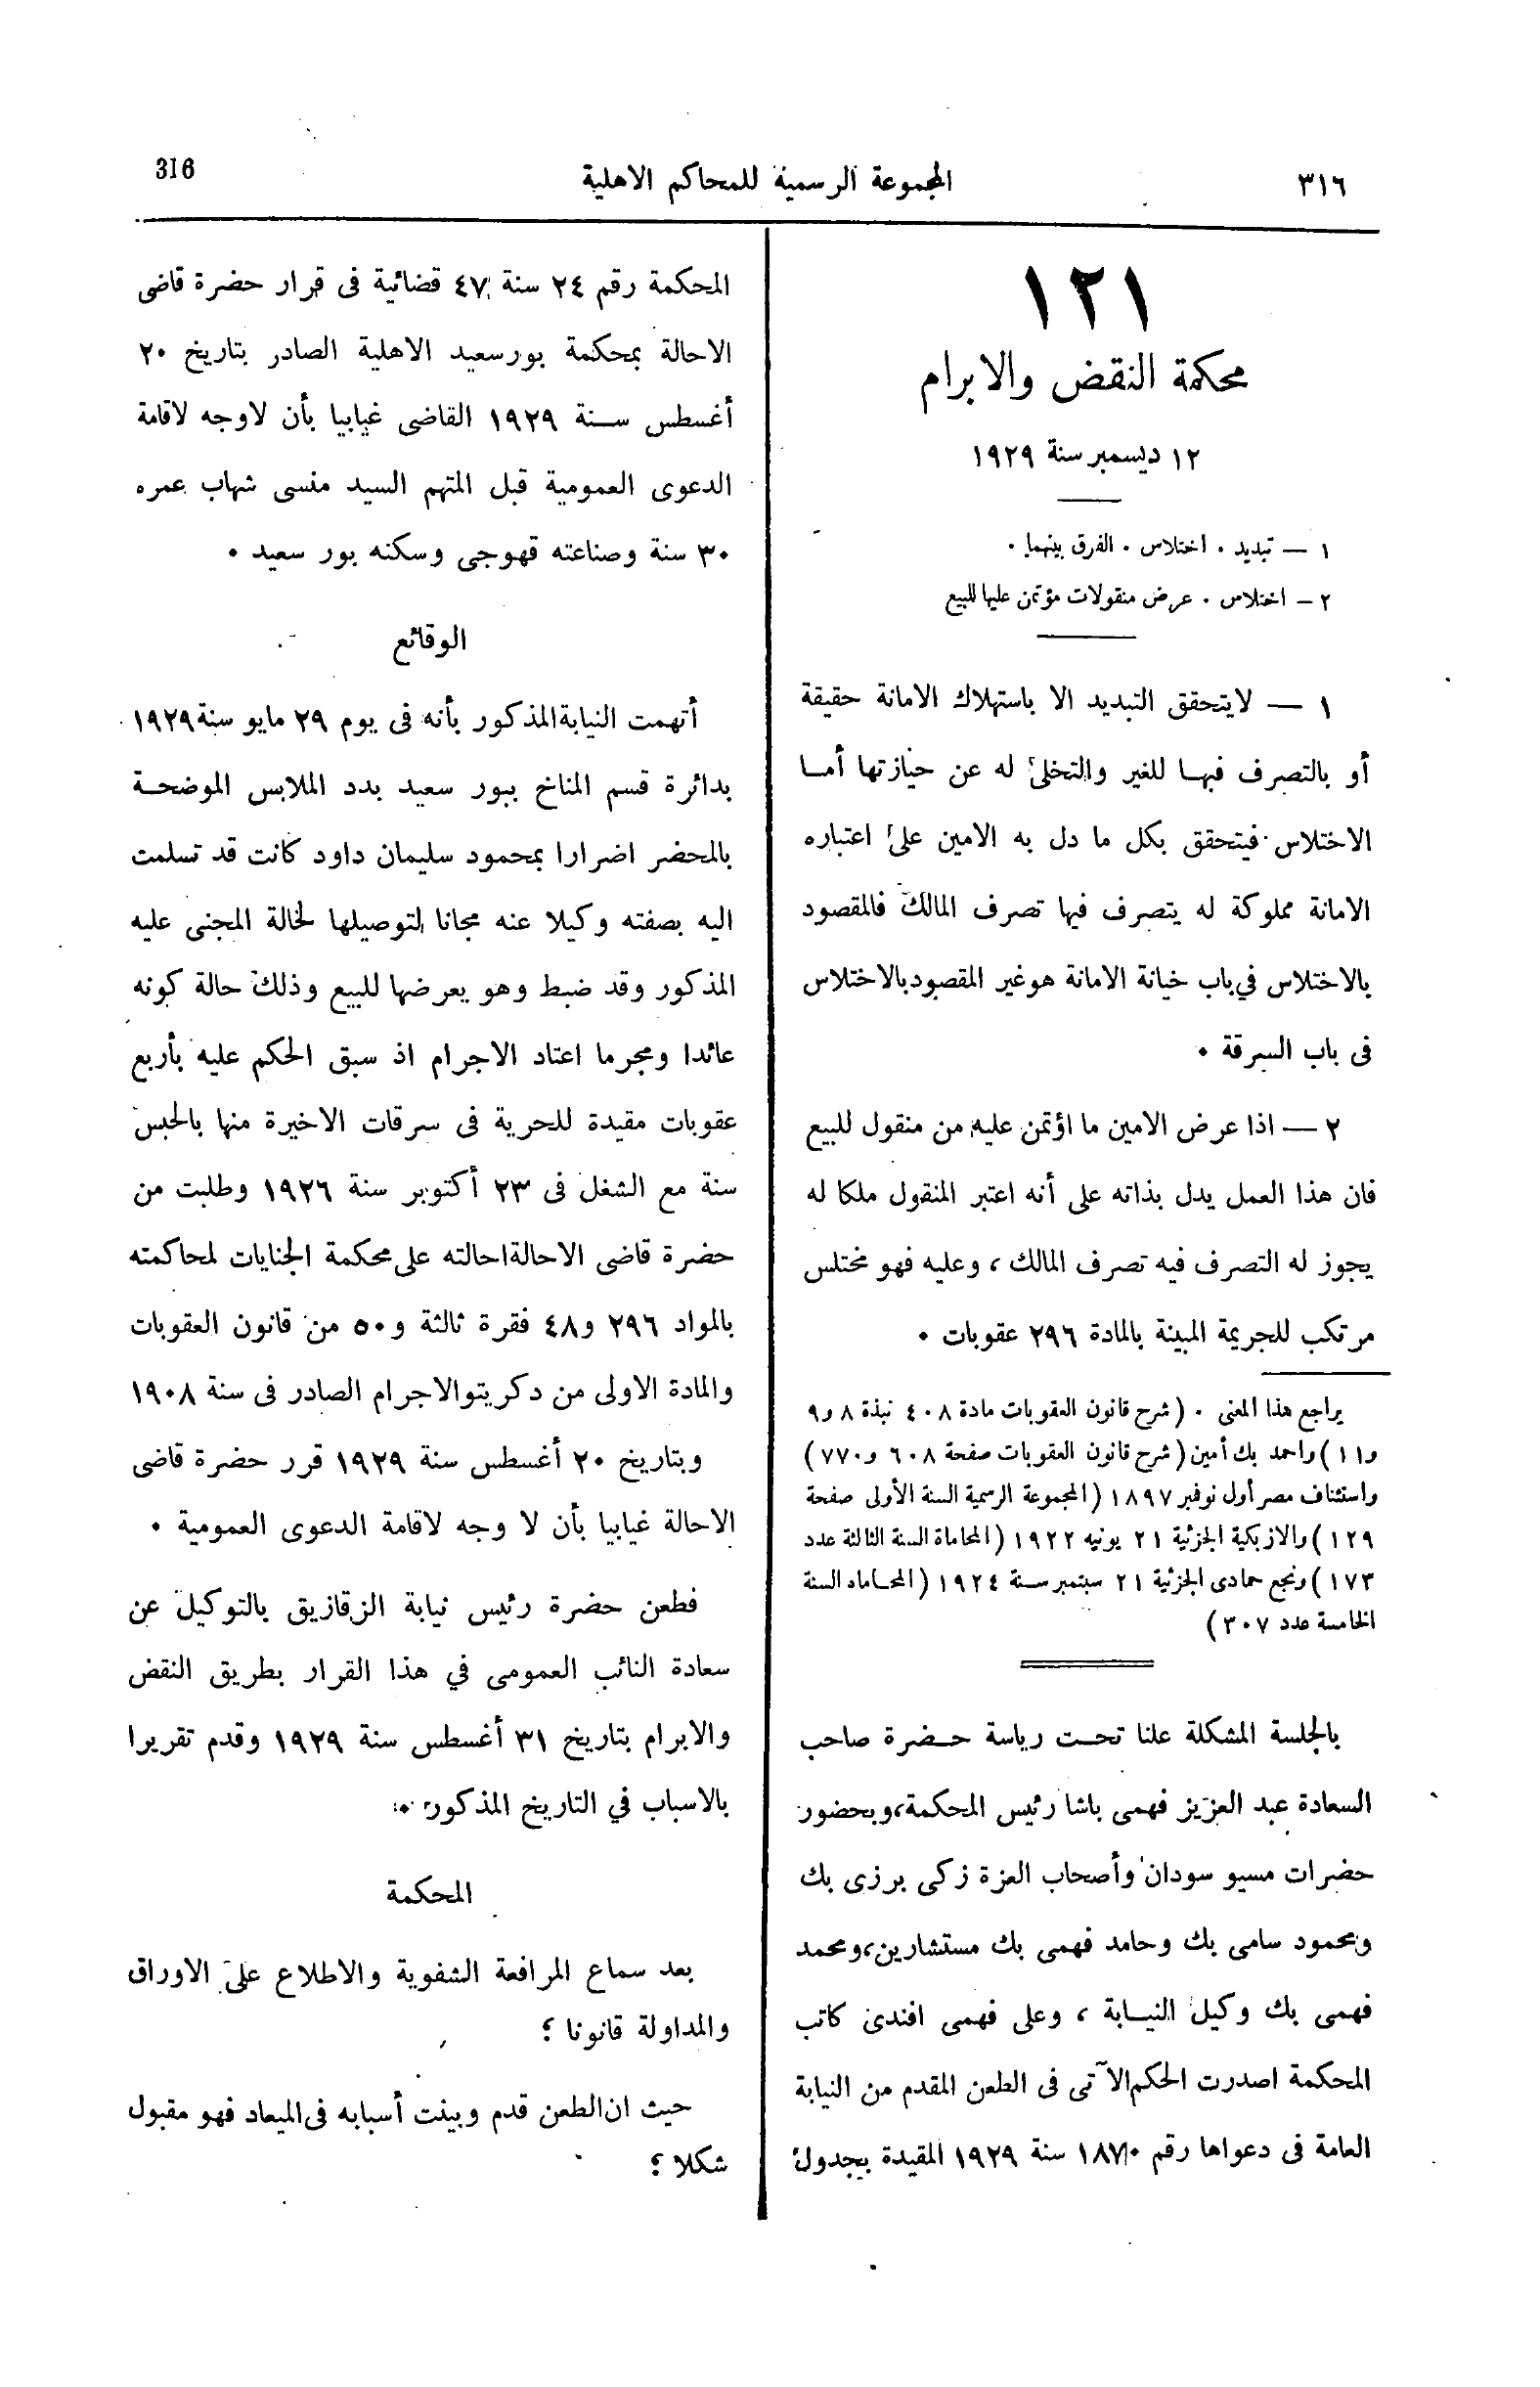 ٣١٦
المجموعة الرسمية للمحاكم الاهلية
316
١٢١
محكمة النقض والابرام
١٢ ديسمبر سنة ١٩٢٩
١ — تبديد . اختلاس . الفرق بينهما .
٢ — اختلاس . عرض منقولات مؤتمن عليها للبيع
١ — لايتحقق التبديد الا باستهلاك الامانة حقيقة
أو بالتصرف فيها للغير والتخلى له عن حيازتها أما
الاختلاس فيتحقق بكل ما دل به الامين على اعتباره
الامانة مملوكة له يتصرف فيها تصرف المالك فالمقصود
بالاختلاس في باب خيانة الامانة هو غير المقصود بالاختلاس
فى باب السرقة .
٢ — اذا عرض الامين ما اؤتمن عليه من منقول للبيع
فان هذا العمل يدل بذاته على أنه اعتبر المنقول ملكا له
يجوز له التصرف فيه تصرف المالك ، وعليه فهو مختلس
مرتكب للجريمة المبينة بالمادة ٢٩٦ عقوبات .
يراجع هذا المعنى . (شرح قانون العقوبات مادة ٤٠٨ نبذة ٨ و٩
و١١) واحمد بك أمين (شرح قانون العقوبات صفحة ٦٠٨ و٧٧٠)
واستئناف مصر أول نوفمبر ١٨٩٧ (المجموعة الرسمية السنة الأولى صفحة
١٢٩) والازبكية الجزئية ٢١ يونيه ١٩٢٢ (المحاماة السنة الثالثة عدد
١٧٣) ونجع حمادى الجزئية ٢١ سبتمبر سنة ١٩٢٤ (المحاماه السنة
الخامسة عدد ٣٠٧)
بالجلسة المشكلة علنا تحت رياسة حضرة صاحب
السعادة عبد العزيز فهمى باشا رئيس المحكمة، وبحضور
حضرات مسيو سودان وأصحاب العزة زكى برزى بك
ومحمود سامى بك وحامد فهمى بك مستشارين، ومحمد
فهمى بك وكيل النيابة ، وعلى فهمى افندى كاتب
المحكمة اصدرت الحكم الآتى فى الطعن المقدم من النيابة
العامة فى دعواها رقم ١٨٧٠ سنة ١٩٢٩ المقيدة بجدول
المحكمة رقم ٢٤ سنة ٤٧ قضائية فى قرار حضرة قاضى
الاحالة بمحكمة بورسعيد الاهلية الصادر بتاريخ ٢٠
أغسطس سنة ١٩٢٩ القاضى غيابيا بأن لاوجه لاقامة
الدعوى العمومية قبل المتهم السيد منسى شهاب عمره
٣٠ سنة وصناعته قهوجى وسكنه بور سعيد .
الوقائع
أتهمت النيابة المذكور بأنه فى يوم ٢٩ مايو سنة ١٩٢٩
بدائرة قسم المناخ ببور سعيد بدد الملابس الموضحة
بالمحضر اضرارا بمحمود سليمان داود كانت قد تسلمت
اليه بصفته وكيلا عنه مجانا لتوصيلها لخالة المجنى عليه
المذكور وقد ضبط وهو يعرضها للبيع وذلك حالة كونه
عائدا ومجرما اعتاد الاجرام اذ سبق الحكم عليه بأربع
عقوبات مقيدة للحرية فى سرقات الاخيرة منها بالحبس
سنة مع الشغل فى ٢٣ أكتوبر سنة ١٩٢٦ وطلبت من
حضرة قاضى الاحالة احالته على محكمة الجنايات لمحاكمته
بالمواد ٢٩٦ و٤٨ فقرة ثالثة و٥٠ من قانون العقوبات
والمادة الاولى من دكريتو الاجرام الصادر فى سنة ١٩٠٨
وبتاريخ ٢٠ أغسطس سنة ١٩٢٩ قرر حضرة قاضى
الاحالة غيابيا بأن لا وجه لاقامة الدعوى العمومية .
فطعن حضرة رئيس نيابة الزقازيق بالتوكيل عن
سعادة النائب العمومى في هذا القرار بطريق النقض
والابرام بتاريخ ٣١ أغسطس سنة ١٩٢٩ وقدم تقريرا
بالاسباب في التاريخ المذكور .
المحكمة
بعد سماع المرافعة الشفوية والاطلاع على الاوراق
والمداولة قانونا ؛
حيث ان الطعن قدم وبينت أسبابه فى الميعاد فهو مقبول
شكلا ؛